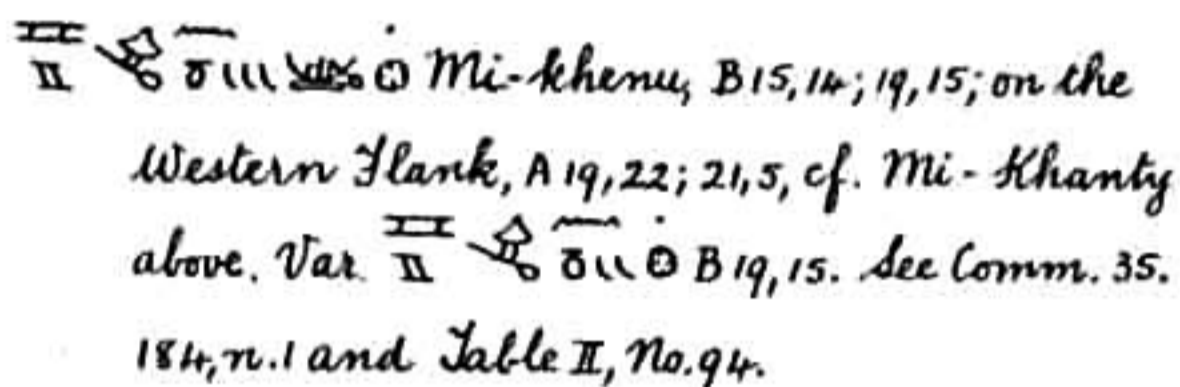 Mi-khenu, B15,14; 19,15; on the
Western Flank, A 19,22; 21,5, cf. Mi-Khanty
above. Var. B 19,15. See Comm. 35.
184, n.1 and Table II, No.94.